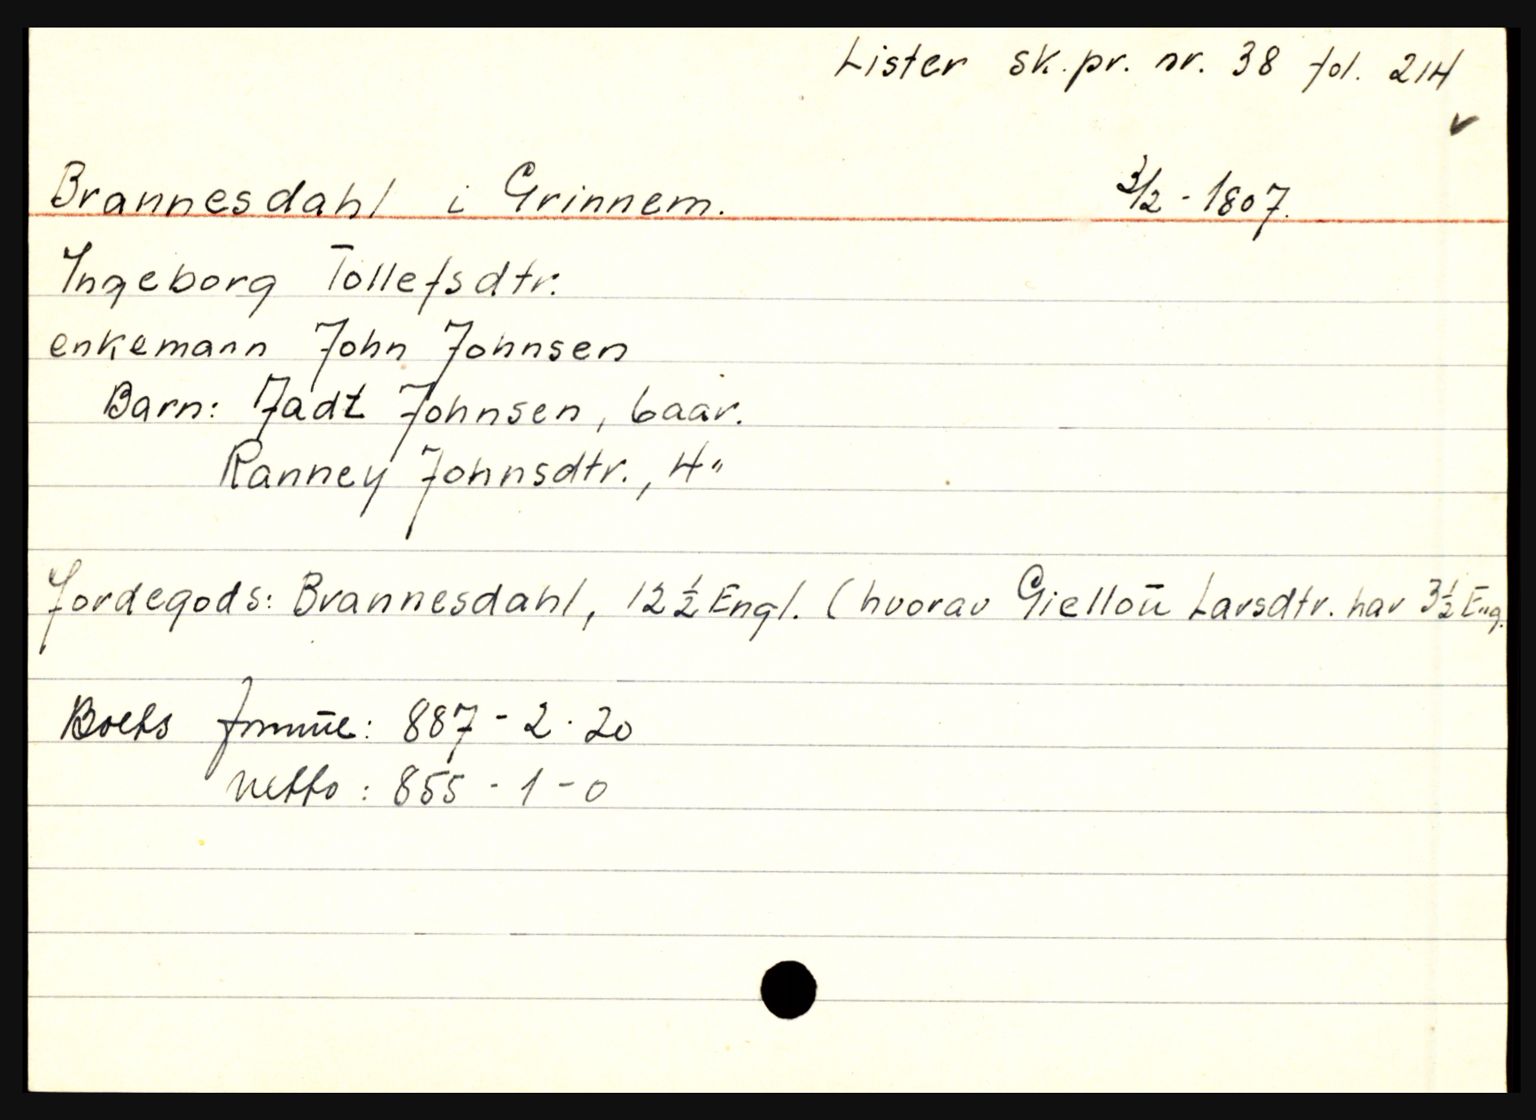 Lister sk.pr. nr. 38 fol. 214
Brannesdahl i Grinnem. 3/2 - 1807.
Ingeborg Tollefsdtr.
enkemann John Johnsen
Barn: Jadt Johnsen, 6 aar.
Ranney Johnsdtr., 4 "
Jordegods: Brannesdahl, 12 ½ Engl. (hvorav Gielloũ Larsdtr. har 3½ Eng.
Boets : 887 - 2 - 20
netto : 855 - 1 - 0